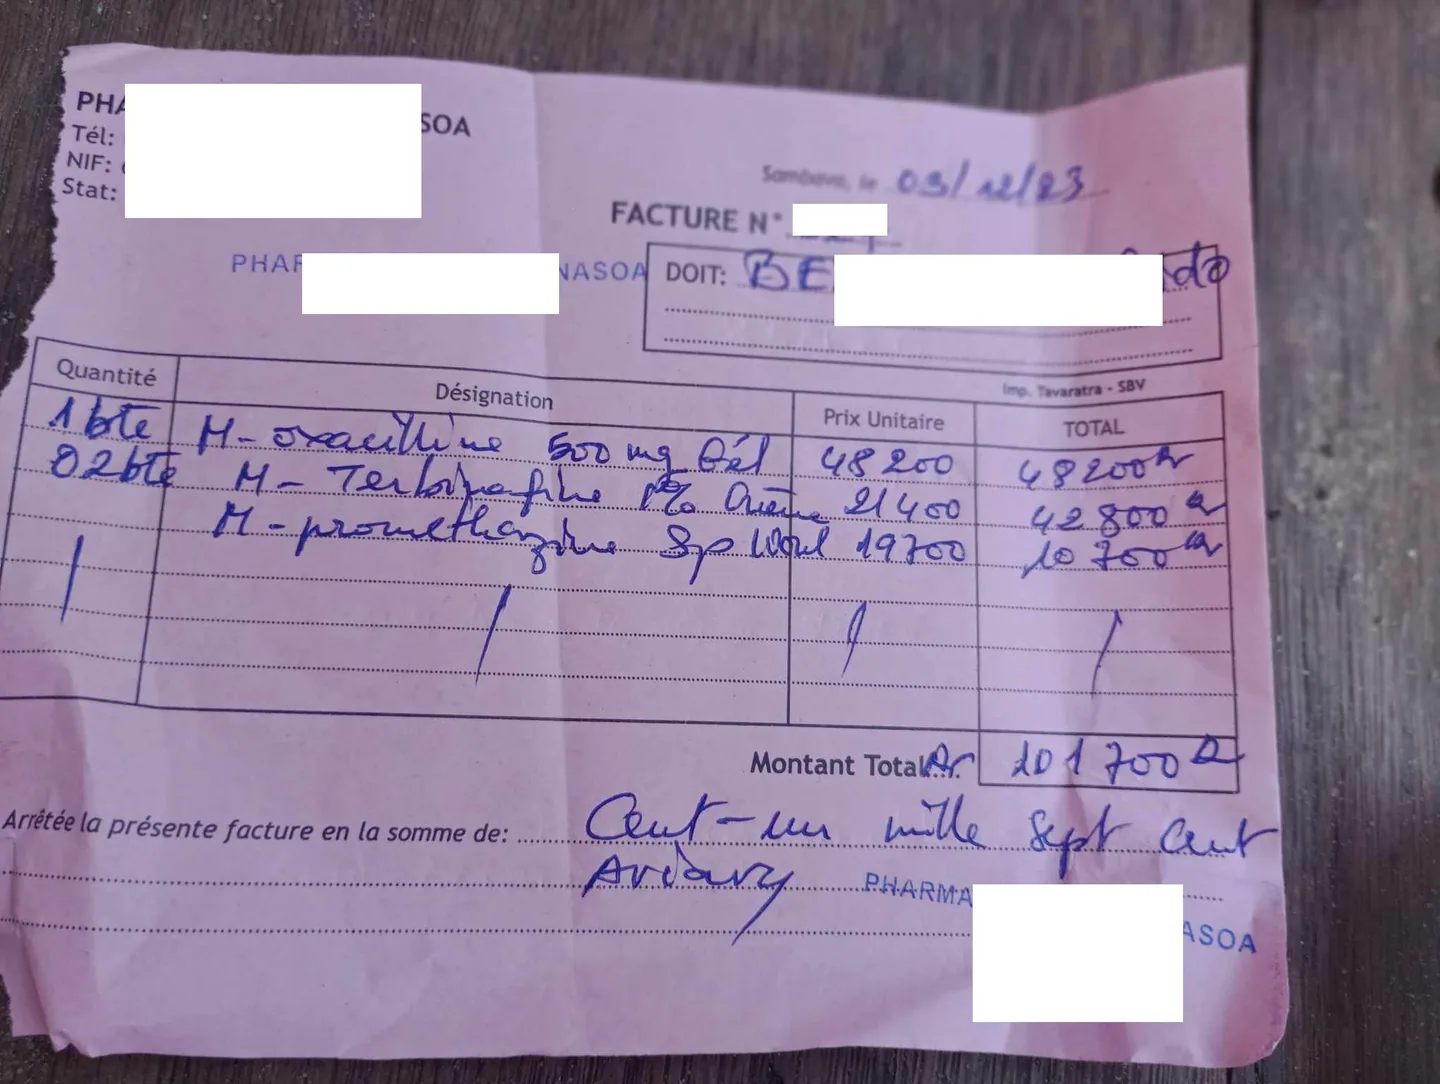 PHA SOA
Tél:
NIF:
Stat:
Sambava, le 03/12/23
FACTURE N°
PHAR NASOA
DOIT: BE do
Imp. Tavaratra - SBV
Quantité Désignation Prix Unitaire TOTAL
1 bte M-oxacilline 500 mg Gél 48 200 48 200 Ar
02 bte M-Terbinafine 1% Crème 21 400 42 800 Ar
M-promethazine Sp 19 700 10 700 Ar
Montant Total... Ar 101 700 Ar
Arrêtée la présente facture en la somme de: Cent-un mille Sept Cent
Ariary
PHARMA
ASOA